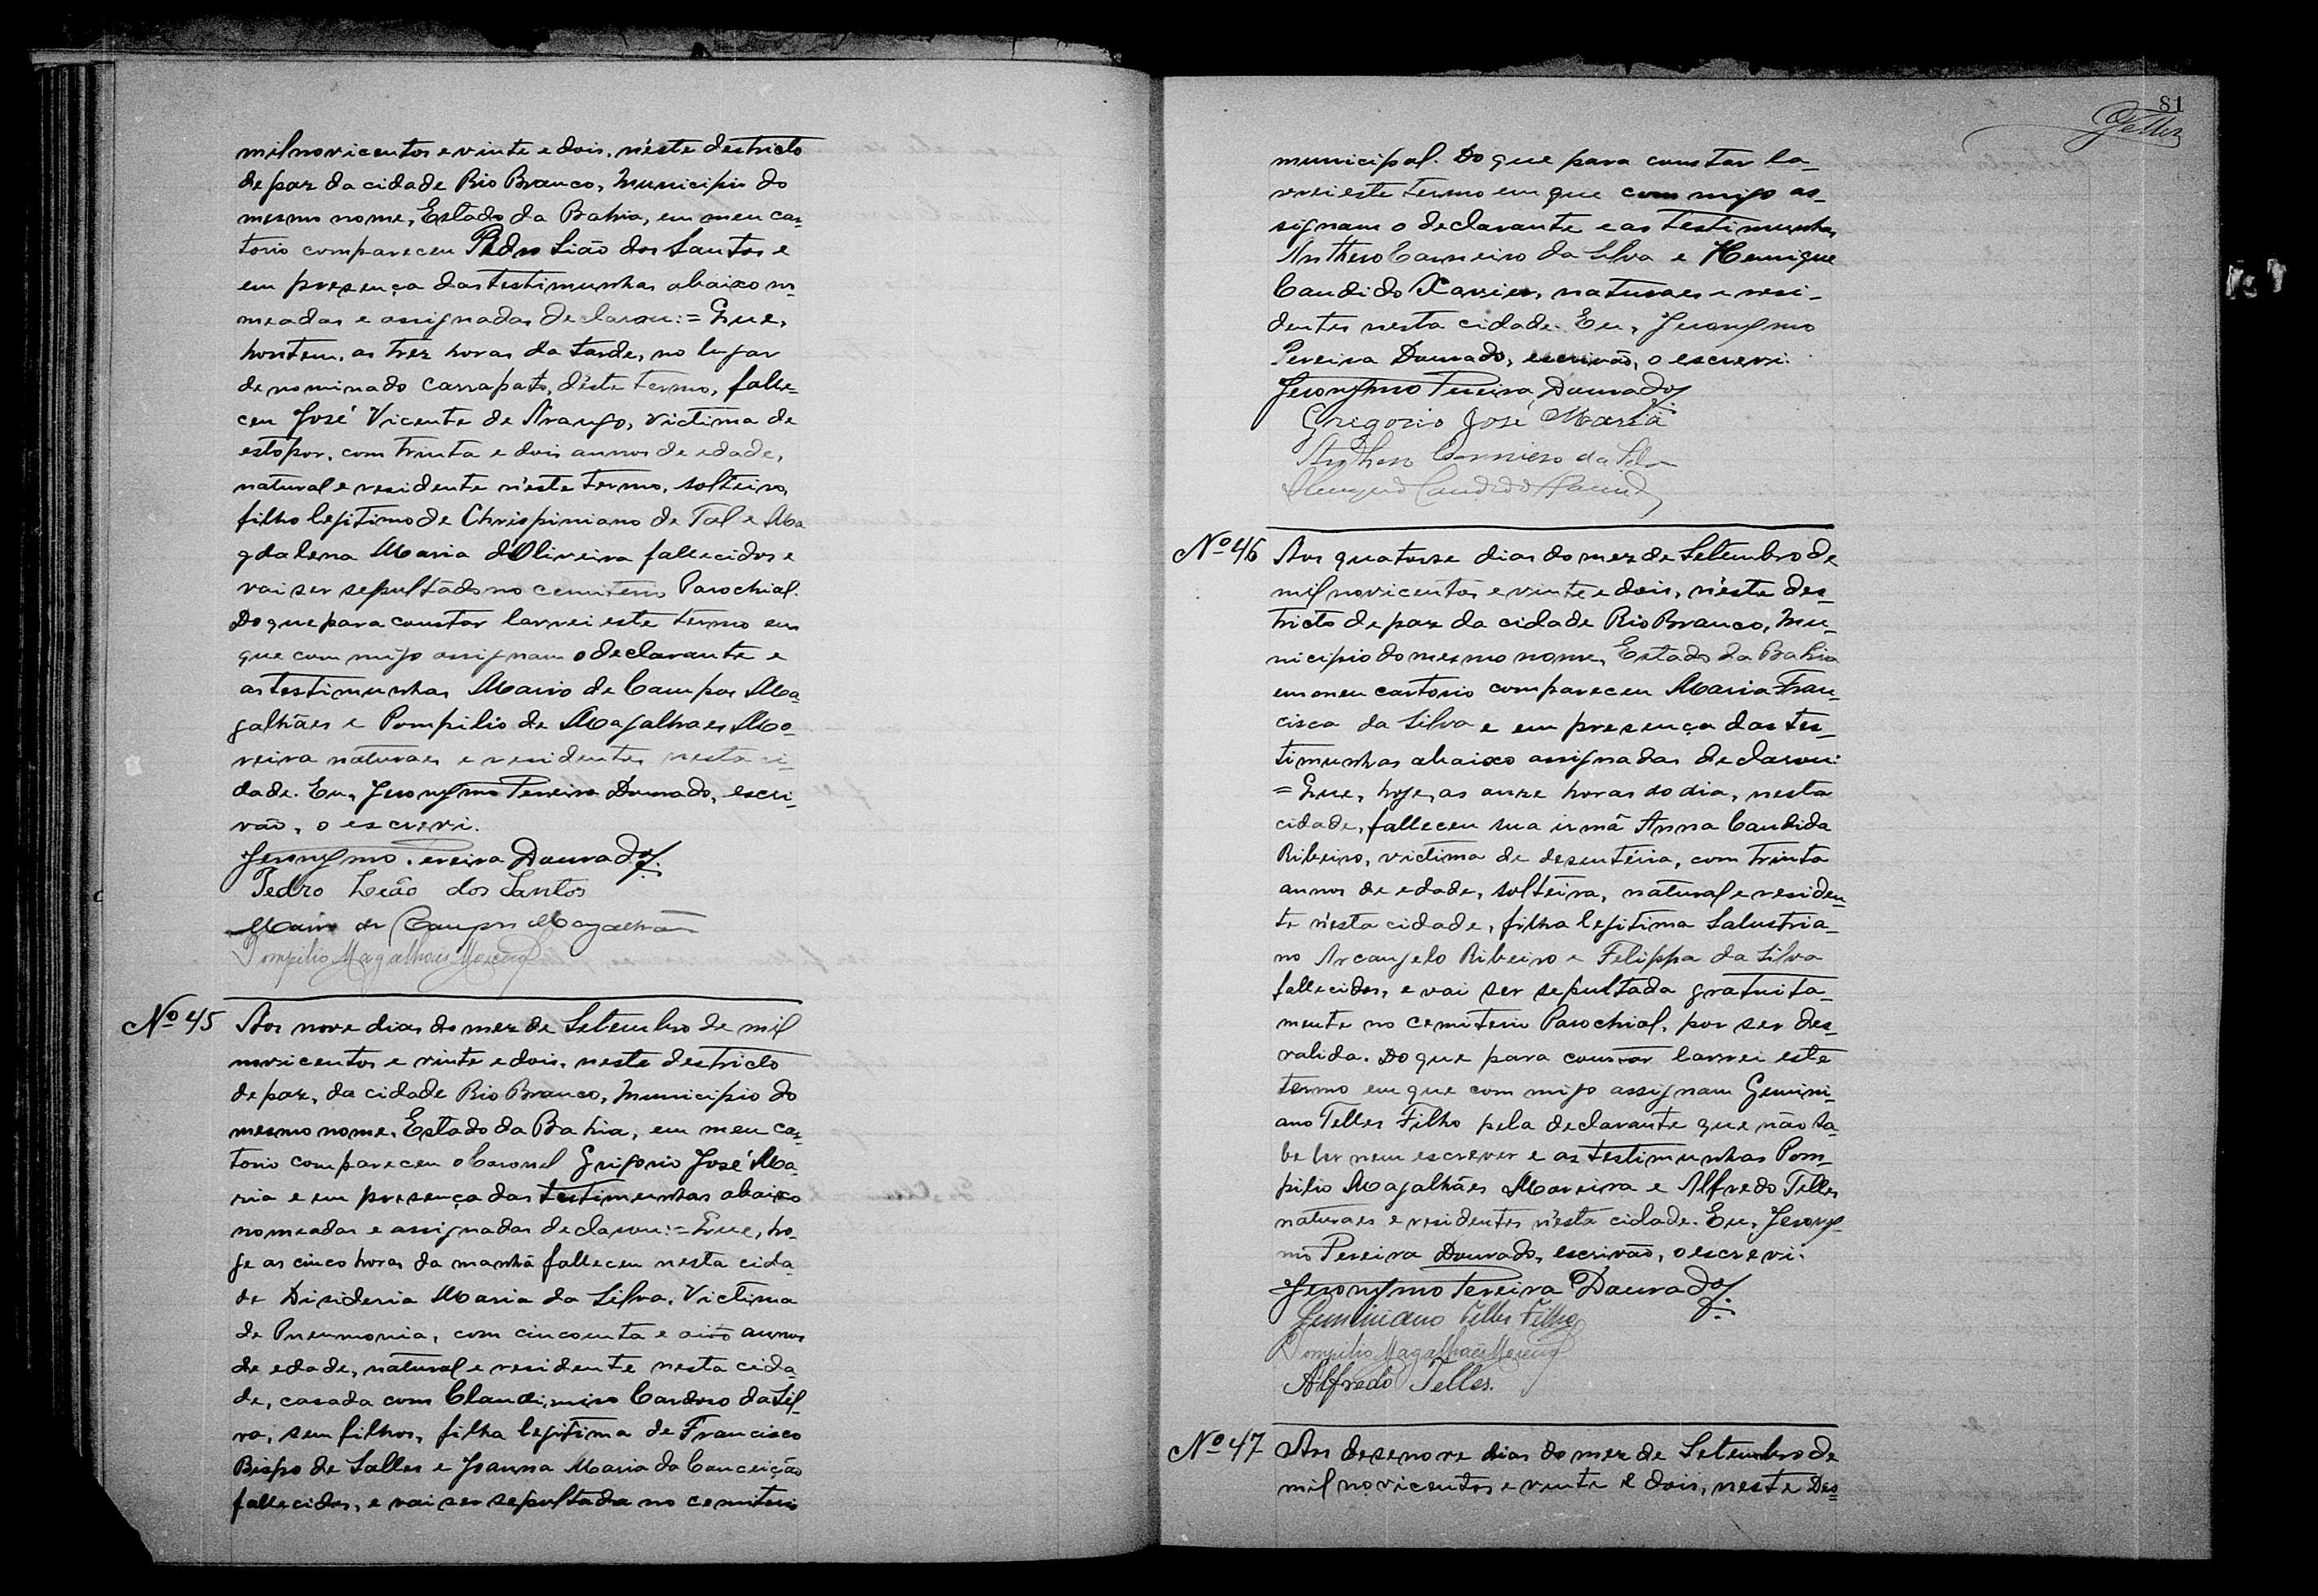 mil novicentos e vinte e dois, n'este destricto
de paz da cidade Rio Branco, Municipio do
mesmo nome, Estado da Bahia, em meu car-
torio compareceu Pedro Lião dos Santos e
em presença das testimunhas abaixo no-
meadas e assignadas declarou:= Que,
hontem, as trez horas da tarde, no lugar
denominado Carrapato, d'éste termo, falle-
ceu José Vicente de Araujo, victima de
estopor, com trinta e dois annos de edade,
natural e residente n'éste termo, solteiro,
filho legitimo de Chrispiniano de Tal e Ma
gdalena Maria d'Oliveira fallecidos e
vai ser sepultado no cemiterio Parochial.
Do que para constar lavrei este termo em
que com migo assignam o declarante e
as testimunhas Mario de Campos Ma-
galhães e Pompilio de Magalhaes Mo-
reira naturaes e residentes nesta ci-
dade. Eu, Jeronymo Pereira Dourado, escri-
vão, o escrevi.
Jeronymo Pereira Dourado
Pedro Leão dos Santos
Mario de Campos Magalhães
Pompilio Magalhães Moreira
Nº 45 Aos nove dias do mez de Setembro de mil
novicentos e vinte e dois, neste destricto
de paz, da cidade Rio Branco, Municipio do
mesmo nome, Estado da Bahia, em meu car-
torio compareceu o Coronel Grigorio José Ma-
ria e em presença das testimunhas abaixo
nomeadas e assignadas declarou:= Que, ho-
je as cinco horas da manhã falleceu nesta cida-
de Disideria Maria da Silva, Victima
de Pneumonia, com cincoenta e oito annos
de edade, natural e residente nesta cida-
de, casada com Claudimiro Cardoso da Sil-
va, sem filhos, filha legitima de Francisco
Bispo de Salles e Joanna Maria da Conceição
fallecidos, e vai ser sepultada no cemiterio
81
Telles
municipal. Do que para constar la-
vrei este termo em que com migo as-
signam o declarante e as testimunhas
Anthero Carneiro da Silva e Henrique
Candido Xavier, naturaes e resi-
dentes nesta cidade. Eu, Jeronymo
Pereira Dourado, escrivão, o escrevi.
Jeronymo Pereira Dourado
Gregorio José Maria
Anthero Carneiro da Silva
Candido
Nº 46 Aos quatorse dias do mez de Setembro de
mil novicentos e vinte e dois, n'ésta des-
tricto de paz da cidade Rio Branco, Mu-
nicipio do mesmo nome, Estado da Bahia
em meu cartorio compareceu Maria Fran-
cisca da Silva e em presença das tes-
timunhas abaixo assignadas declarou:
= Que, hoje, as onze horas do dia, nesta
cidade, falleceu sua irmã Anna Candida
Ribeiro, victima de desentéria, com trinta
annos de edade, solteira, natural e residen-
te n'ésta cidade, filha legitima Salustria-
no Arcangelo Ribeiro e Filippa da Silva
fallecidos, e vai ser sepultada gratuita-
mente no cemiterio Parochial, por ser des-
valida. Do que para constar lavrei este
termo em que com migo assignam Gemini-
ano Telles Filho pela declarante que não sa-
be ler nem escrever e as testimunhas Pom-
pilio Magalhães Moreira e Alfredo Telles
naturaes e residentes n'ésta cidade. Eu, Jerony-
mo Pereira Dourado, escrivão, o escrevi.
Jeronymo Pereira Dourado
Geminiano Telles Filho
Pompilio Magalhães Moreira
Alfredo Telles.
Nº 47 Aos desenove dias do mez de Setembro de
mil novicentos e vinte e dois, neste Des=